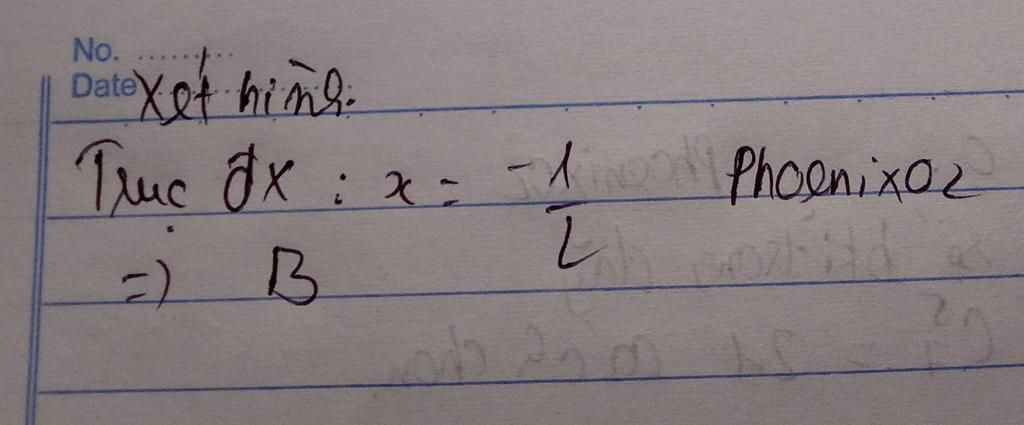 No. ..........
Date Xét hình.
Trục đx : x = -1/2 Phoenix02
=> B